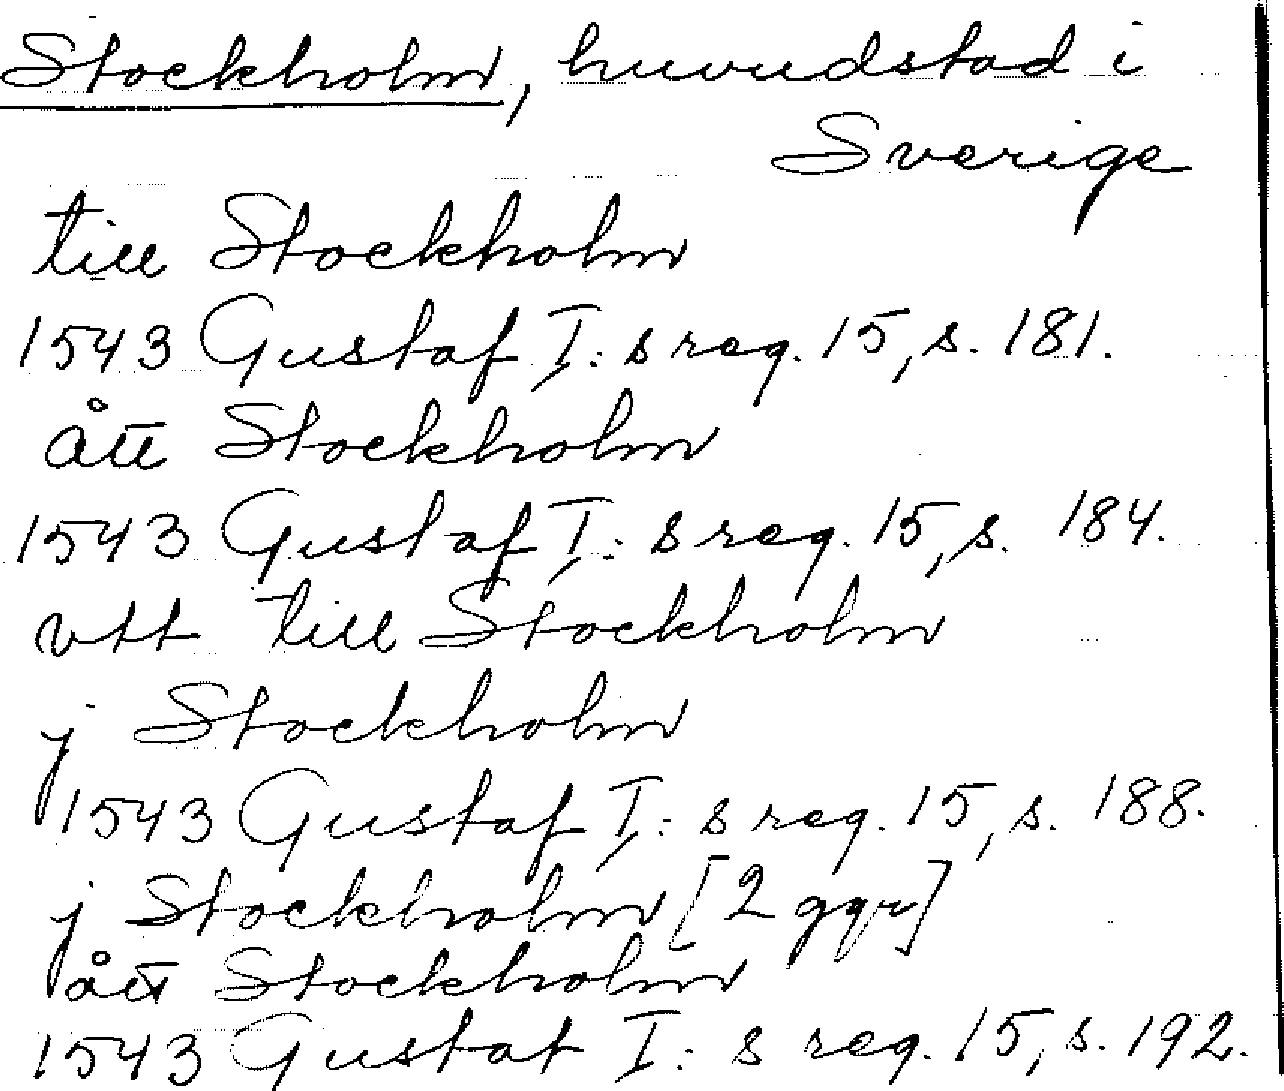 Stockholm, huvudstad i
Sverige
till Stockholm
1543 Gustaf I:s reg. 15, s. 181.
ått Stockholm
1543 Gustaf I:s reg. 15, s. 184.
vtt till Stockholm
j Stockholm
1543 Gustaf I:s reg. 15, s. 188.
j Stockholm [2 ggr]
ått Stockholm
1543 Gustaf I:s reg. 15, s. 192.